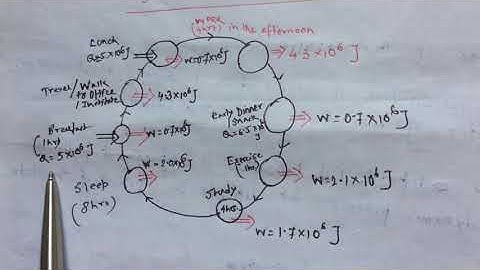 Work
(4hrs) in the afternoon
Lunch
Q=5×10⁶J
W=0.7×10⁶J
4.3×10⁶J
Travel/Walk
to Office
/Institute
4.3×10⁶J
Early Dinner
Snack
Q=6.5×10⁶J
W=0.7×10⁶J
Breakfast
(1hr)
Q=5×10⁶J
W=0.7×10⁶J
W=2.0×10⁶J
Exercise
(1hr)
W=2.1×10⁶J
Sleep
(8hrs)
Study
4hrs.
W=1.7×10⁶J